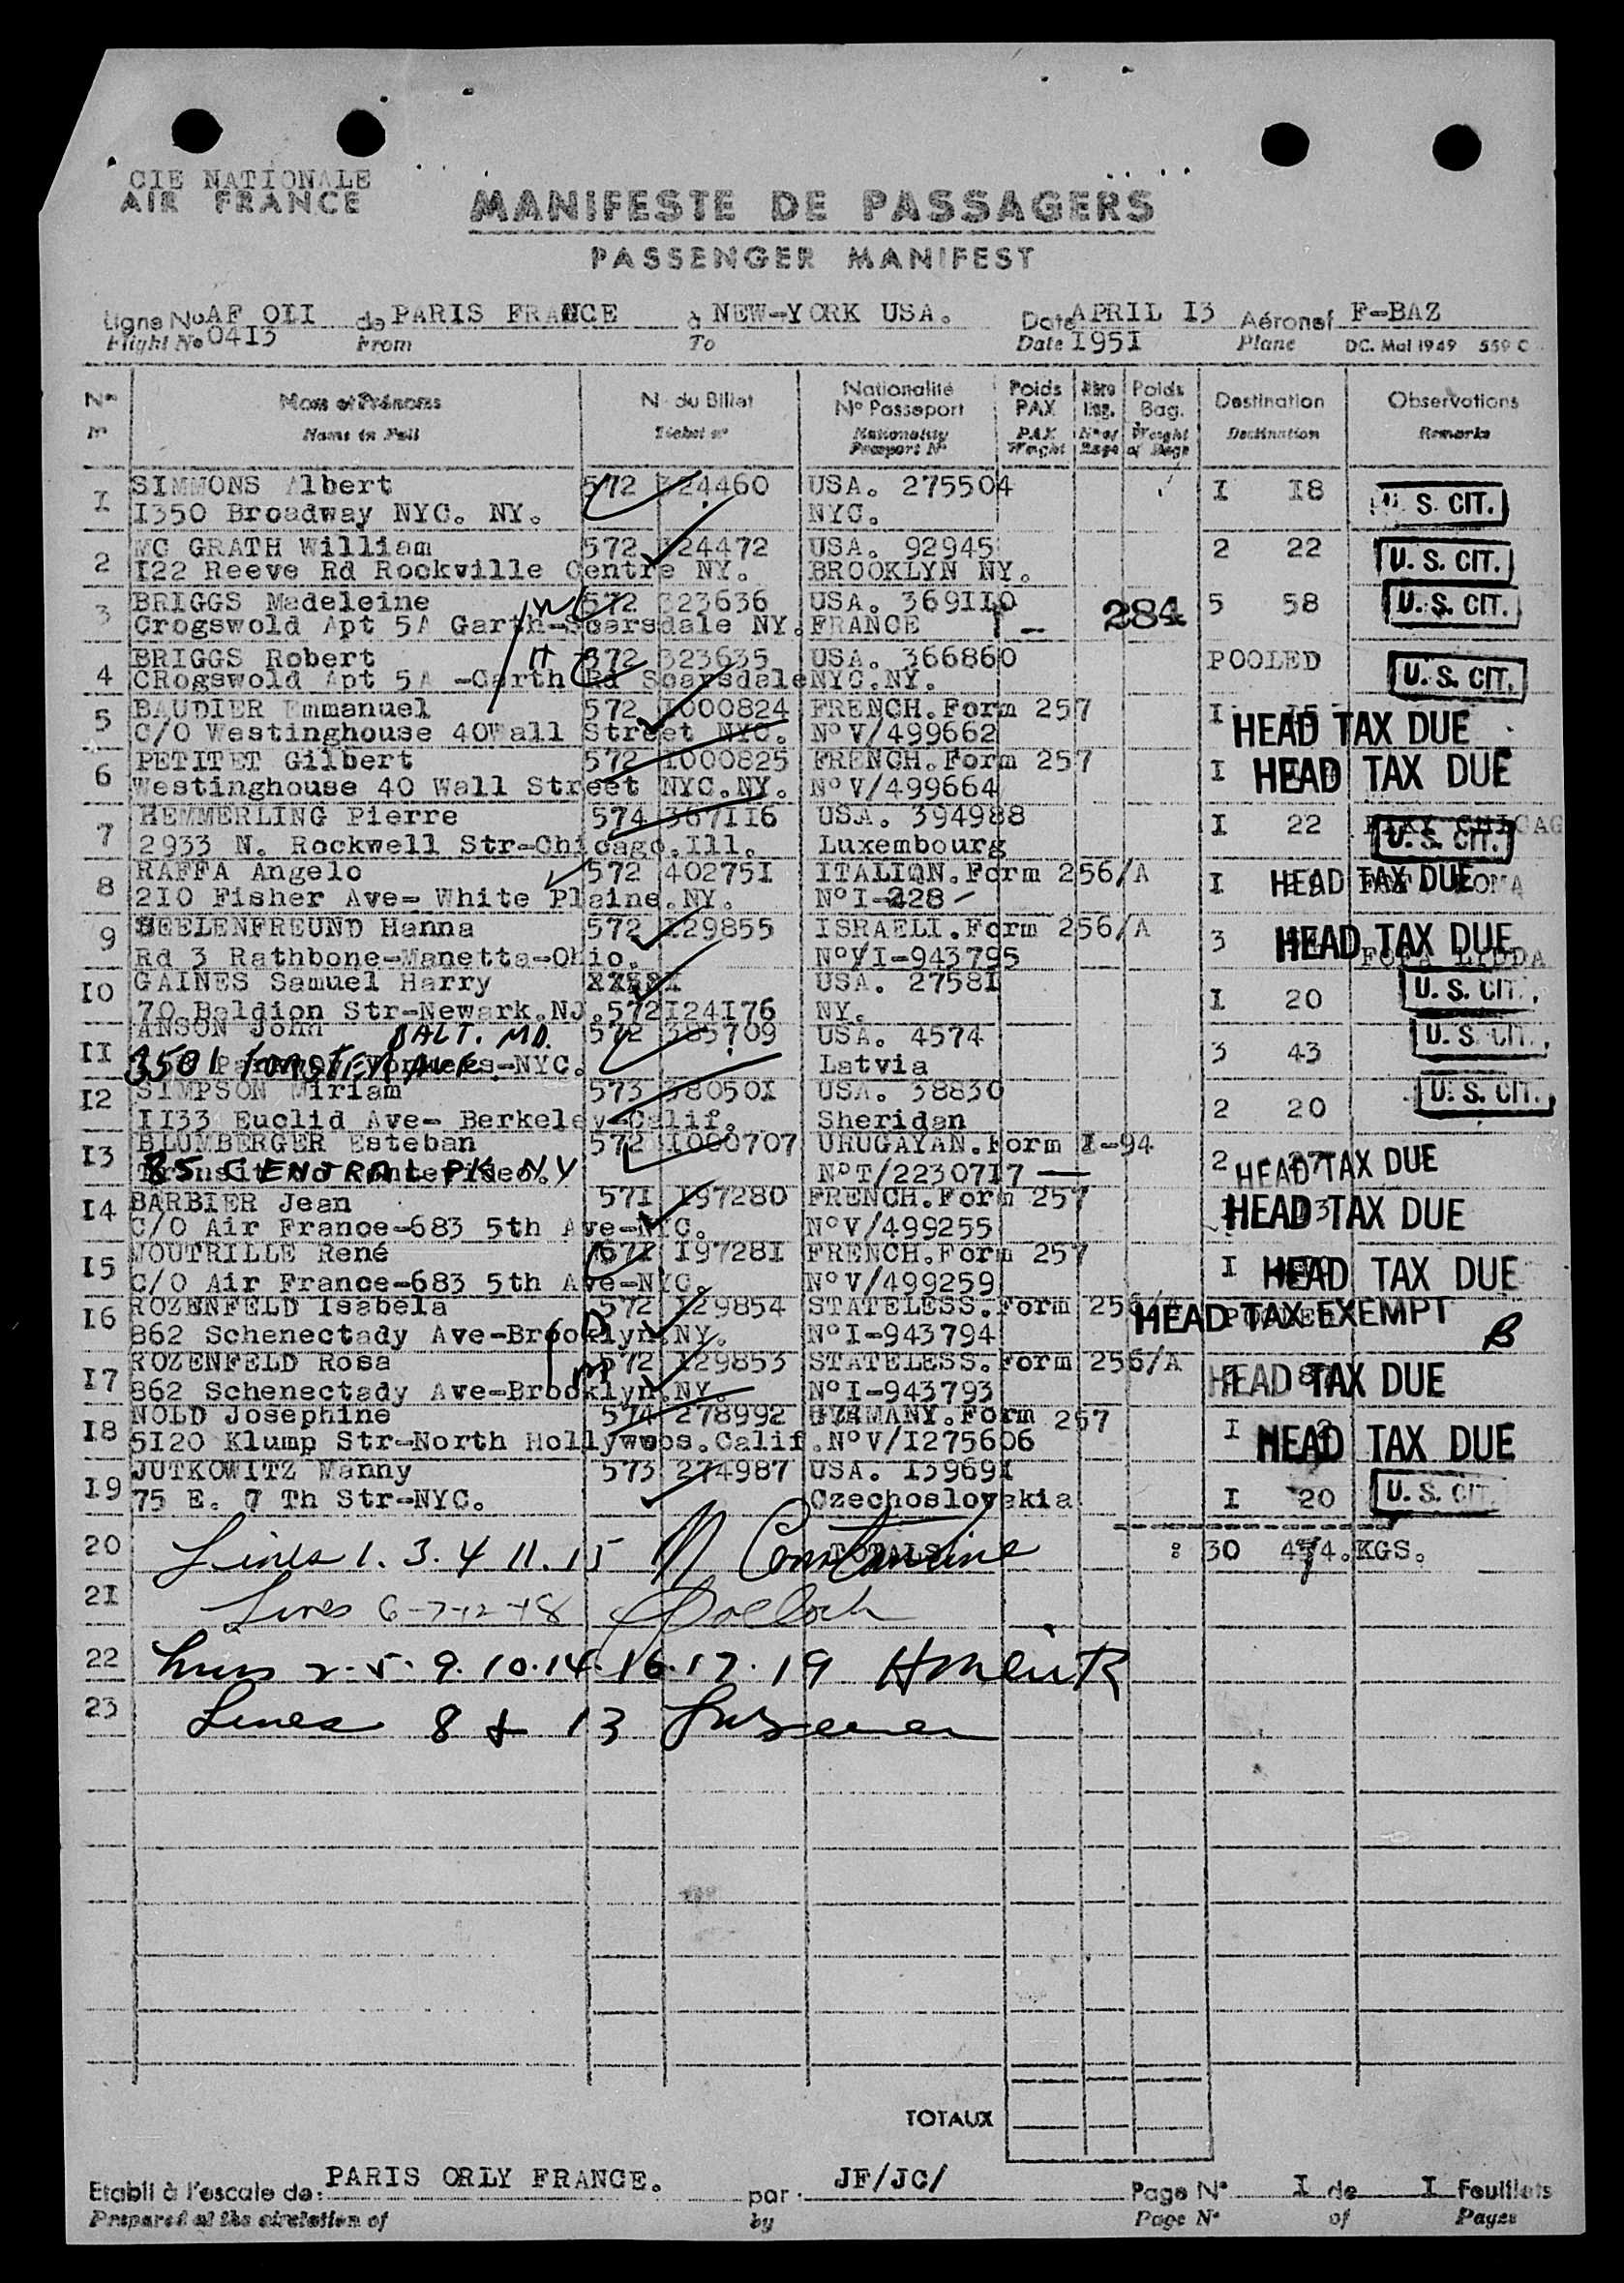 CIE NATIONALE
AIR FRANCE
MANIFESTE DE PASSAGERS
PASSENGER MANIFEST
Ligne No AF OII de PARIS FRANCE à NEW-YORK USA. Date APRIL I3 Aéronef F-BAZ
Flight No 04I3 From To Date I95I Plane DC. Mai 1949 559 C
Nº Noms et Prénoms N. du Billet Nationalité Poids Nbre Poids Destination Observations
Nº Passeport PAX Bag. Bag.
Nº Name in Full Ticket nº Nationality PAX Nº of Weight Destination Remarks
Passport Nº Weight Bags of Bags
I SIMMONS Albert 572 324460 USA. 275504 I I8 U. S. CIT.
I350 Broadway NYC. NY. NYC.
2 MC GRATH William 572 I24472 USA. 92945 2 22 U. S. CIT.
I22 Reeve Rd Rockville Centre NY. BROOKLYN NY.
3 BRIGGS Madeleine W 572 323636 USA. 369II0 284 5 58 U. S. CIT.
Crogswold Apt 5A Garth-Scarsdale NY. FRANCE
4 BRIGGS Robert H 572 323635 USA. 366860 POOLED U. S. CIT.
CRogswold Apt 5A -Garth Rd Scarsdale NYC.NY.
5 BAUDIER Emmanuel 572 I000824 FRENCH.Form 257 I HEAD TAX DUE
C/O Westinghouse 40Wall Street NYC. NºV/499662
6 PETITET Gilbert 572 I000825 FRENCH.Form 257 I HEAD TAX DUE
Westinghouse 40 Wall Street NYC.NY. NºV/499664
7 HEMMERLING Pierre 574 367II6 USA. 394988 I 22 CHICAG
2933 N. Rockwell Str-Chicago.Ill. Luxembourg U. S. CIT.
8 RAFFA Angelo 572 40275I ITALION.Form 256/A I HEAD TAX DUE
2I0 Fisher Ave- White Plaine.NY. NºI-228-
9 SEELENFREUND Hanna 572 I29855 ISRAELI.Form 256/A 3 HEAD TAX DUE
Rd 3 Rathbone-Manetta-Ohio. NºVI-943795 LIDDA
I0 GAINES Samuel Harry USA. 2758I I 20 U. S. CIT.
70 Baldion Str-Newark.NJ. 572 I24I76 NY.
II ANSON John BALT. MD. 572 385709 USA. 4574 3 43 U. S. CIT.
3501 FORSTER AVE. -NYC. Latvia
I2 SIMPSON Miriam 573 38050I USA. 38830 2 20 U. S. CIT.
II33 Euclid Ave- Berkeley-Calif. Sheridan
I3 BLUMBERGER Esteban 572 I000707 URUGAYAN.Form I-94 2 HEAD TAX DUE
85 CENTRAL PK N.Y NºT/22307I7
I4 BARBIER Jean 57I I97280 FRENCH.Form 257 HEAD TAX DUE
C/O Air France-683 5th Ave-NYC. NºV/499255
I5 VOUTRILLE René 57I I9728I FRENCH.Form 257 I HEAD TAX DUE
C/O Air France-683 5th Ave-NYC. NºV/499259
I6 ROZENFELD Isabela D 572 I29854 STATELESS.Form 256/A HEAD TAX EXEMPT
862 Schenectady Ave-Brooklyn.NY. NºI-943794 B
I7 ROZENFELD Rosa m 572 I29853 STATELESS.Form 256/A HEAD TAX DUE
862 Schenectady Ave-Brooklyn.NY. NºI-943793
I8 NOLD Josephine 574 278992 GERMANY.Form 257 I HEAD TAX DUE
5I20 Klump Str-North Hollywoos.Calif. NºV/I275606
I9 JUTKOWITZ Manny 573 274987 USA. I3969I
75 E. 7 Th Str-NYC. Czechoslovakia I 20 U. S. CIT
20 Lines 1. 3. 4 11. 15 N Constantine TOTALS : 30 474.KGS.
2I Lines 6-7-12-18 Pollock
22 Lines 2. 5. 9. 10. 14. 16. 17. 19
23 Lines 8 & 13
TOTAUX
Etabli à l'escale de: PARIS ORLY FRANCE. par JF/JC/ Page Nº I de I Feuillets
Prepared at the by Page Nº of Pages